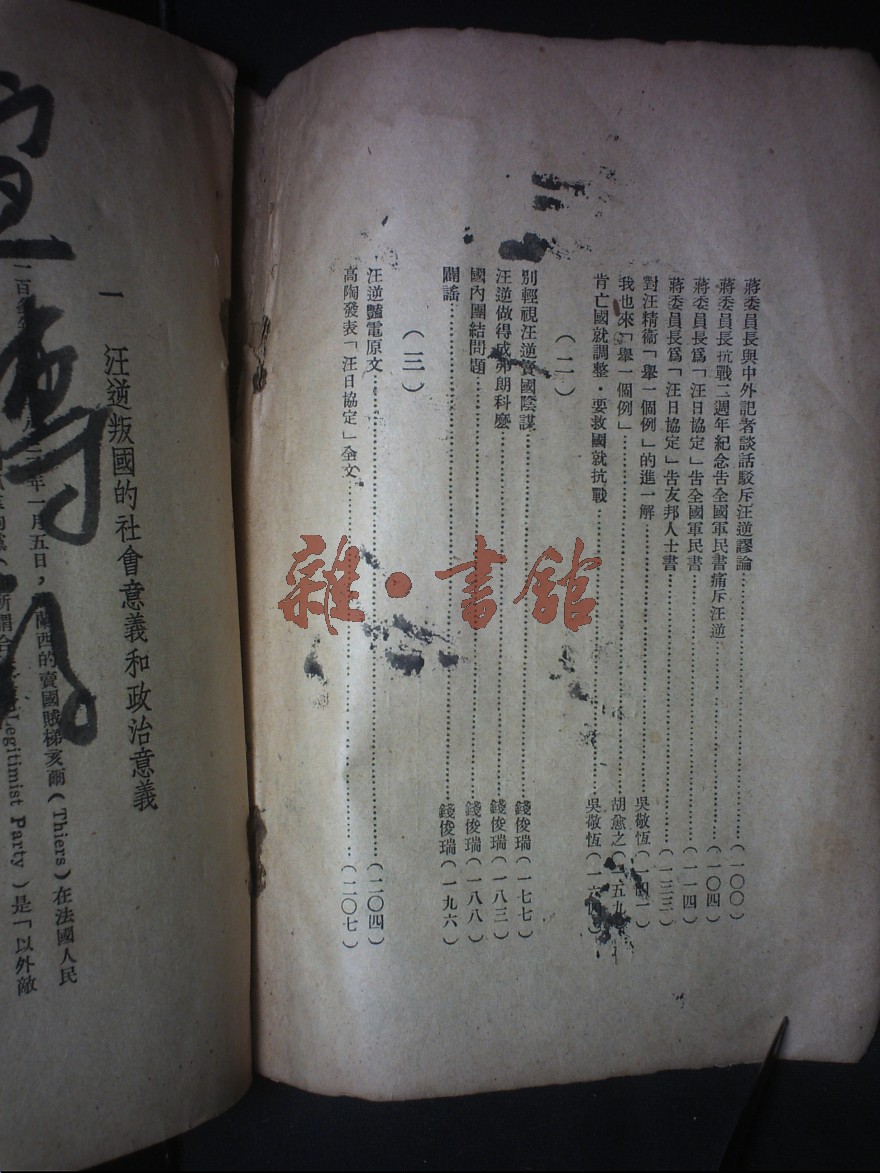 蔣委員長與中外記者談話駁斥汪逆謬論……(一〇〇)
蔣委員長抗戰二週年紀念告全國軍民書痛斥汪逆……(一〇四)
蔣委員長爲「汪日協定」告全國軍民書……(一一四)
蔣委員長爲「汪日協定」告友邦人士書……(一三三)
對汪精衛「舉一個例」的進一解……吳敬恆(一四一)
我也來「舉一個例」……胡愈之(一五九
肯亡國就調整・要救國就抗戰……吳敬恆(一六
(二)
別輕視汪逆賣國陰謀……錢俊瑞(一七七)
汪逆做得成弗朗科麽……錢俊瑞(一八三)
國內團結問題……錢俊瑞(一八八)
闢謠……錢俊瑞(一九六)
(三)
汪逆豔電原文……(二〇四)
高陶發表「汪日協定」全文……(二〇七)
一 汪逆叛國的社會意義和政治意義
年一月五日，蘭西的賣國賊梯亥爾(Thiers)在法國人民
所謂合 Legitimist Party)是「以外敵
雜・書館